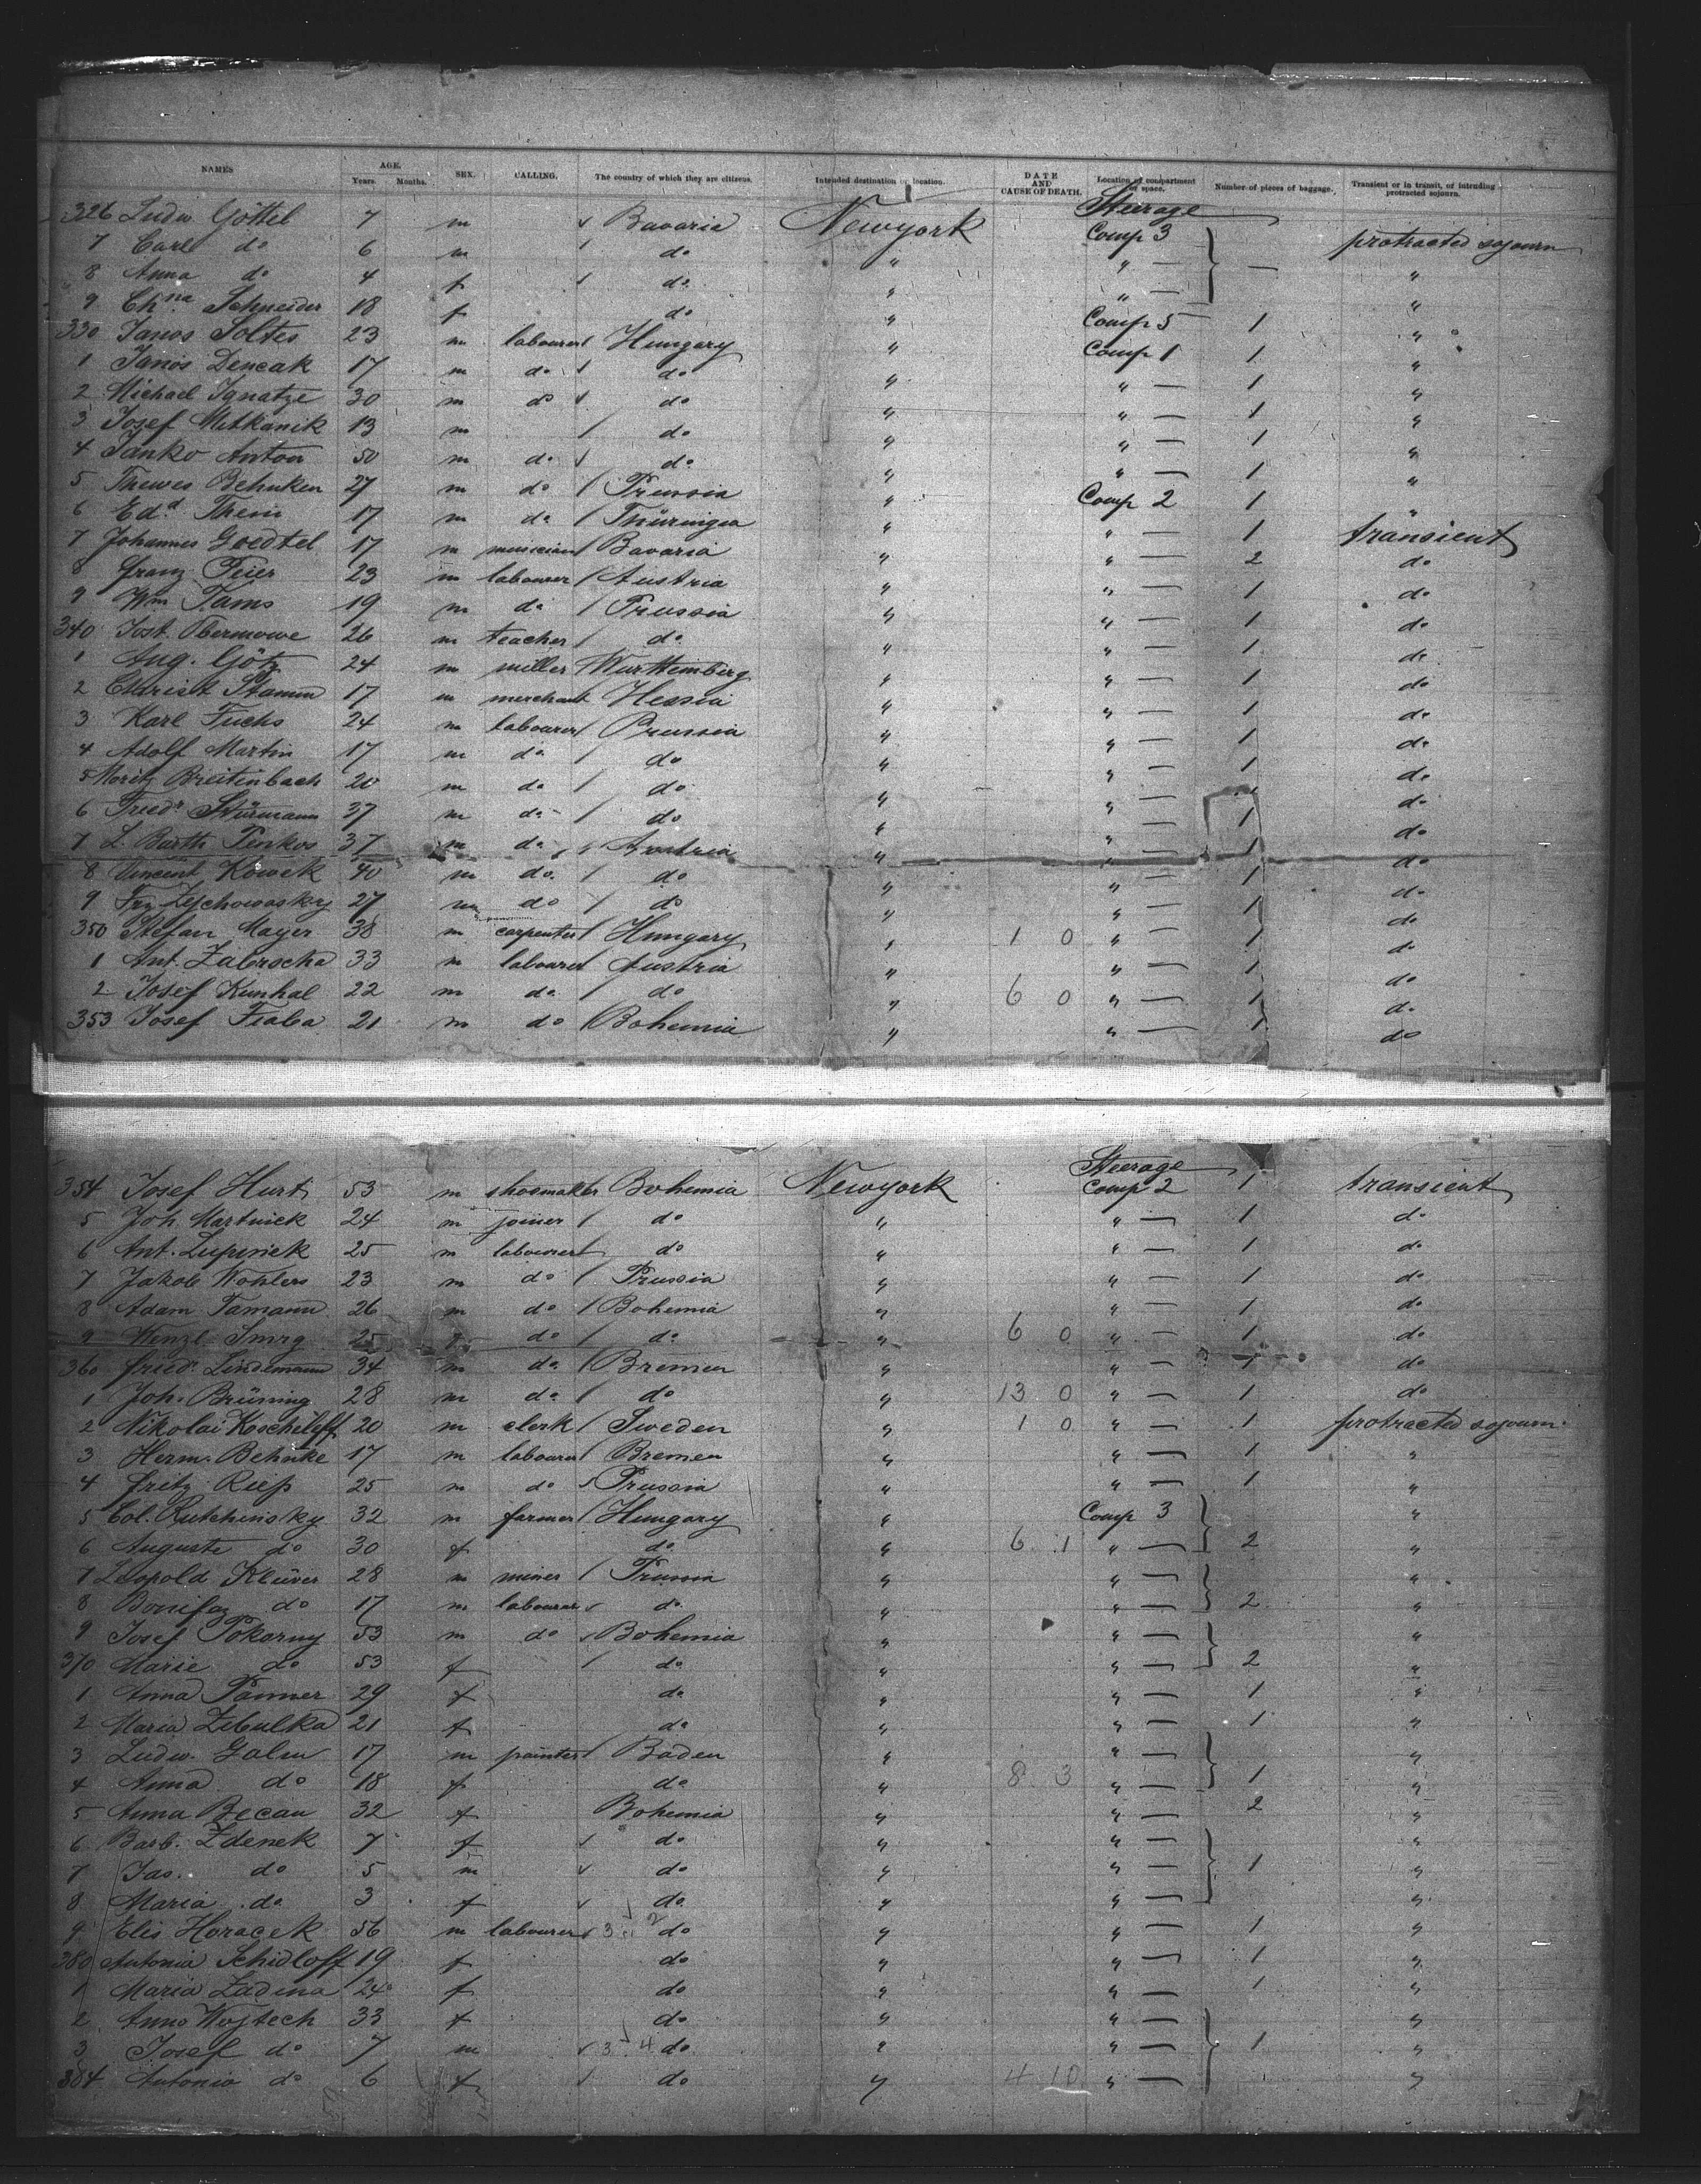 NAMES AGE. Years. Months. SEX. CALLING. The country of which they are citizens. Intended destination or location. DATE AND CAUSE OF DEATH. Location of compartment or space. Number of pieces of baggage. Transient or in transit, or intending protracted sojourn.
326 Ludw. Göttel 7 m Bavaria Newyork Steerage Comp 3 protracted sojourn
7 Carl do 6 m do " " — — "
8 Anna do 4 f do " " — "
9 Chna Schneider 18 f do " Comp 5 1 "
330 Janos Soltes 23 m labourer Hungary " Comp 1 1 "
1 Janos Dencak 17 m do do " " — 1 "
2 Michael Ignatze 30 m do do " " — 1 "
3 Josef Mitkanik 13 m do " " — 1 "
4 Janko Anton 50 m do do " " — 1 "
5 Thewes Behnken 27 m do Prussia " Comp 2 1 "
6 Edd Thein 17 m do Thüringia " " — 1 transient
7 Johannes Goedtel 17 m musician Bavaria " " — 2 do
8 Franz Peier 23 m labourer Austria " " — 1 do
9 Wm Tams 19 m do Prussia " " — 1 do
340 Jost. Obermowe 26 m teacher do " " — 1 do
1 Aug. Götz 24 m miller Wurttemberg " " — 1 do
2 Christ Stamm 17 m merchant Hessia " " — 1 do
3 Karl Fuchs 24 m labourer Prussia " " — 1 do
4 Adolf Martin 17 m do do " " — 1 do
5 Moritz Breitenbach 20 m do do " " — do
6 Friedr Stürmann 37 m do do " " — 1 do
7 L. Barth Penkos 37 m do Austria " " — 1 do
8 Vincent Kowek 40 m do do " " — 1 do
9 Frz Zejchowosky 27 m do do " " — 1 do
350 Stefan Mayer 38 m carpenter Hungary " 1 0 " — 1 do
1 Ant. Zabirscha 33 m labourer Austria " " — 1 do
2 Josef Kunhal 22 m do do " 6 0 " — 1 do
353 Josef Fiala 21 m do Bohemia " " — 1 do
354 Josef Hurt 53 m shoemaker Bohemia Newyork Steerage Comp 2 1 transient
5 Joh. Martinek 24 m joiner do " " — 1 do
6 Ant. Lupinek 25 m labourer do " " — 1 do
7 Jakob Wohlers 23 m do Prussia " " — 1 do
8 Adam Tamann 26 m do Bohemia " " — 1 do
9 Wenzl Smrz 25 do do " 6 0 " — 1 do
360 Friedr. Lindemann 34 m do Bremen " " — 1 do
1 Joh. Brüning 28 m do do " 13 0 " — 1 do
2 Nikolai Koscheleff 20 m clerk Sweden " 1 0 " — 1 protracted sojourn
3 Herm. Behnke 17 m labourer Bremen " " — 1 "
4 Fritz Rieß 25 m do Prussia " " — 1 "
5 Col. Rutchinsky 32 m farmer Hungary " Comp 3 "
6 Auguste do 30 f do " 6 1 " — 2 "
7 Leopold Klüver 28 m miner Prussia " " — "
8 Bonifaz do 17 m labourer do " " — 2 "
9 Josef Pokorny 53 m do Bohemia " " — "
370 Marie do 53 f do " " — 2 "
1 Anna Panner 29 f do " " — 1 "
2 Maria Zibulka 21 f do " " — 1 "
3 Ludw. Galm 17 m painter Baden " " — "
4 Anna do 18 f do " 8 3 " — 1 "
5 Anna Becau 32 f Bohemia " " — 2 "
6 Barb. Zdenek 7 f do " " — "
7 Jas. do 5 m do " " — 1 "
8 Maria do 3 f do " " — "
9 Elis Horacek 56 m labourer do " " — 1 "
380 Antonia Schidloff 19 f do " " — 1 "
1 Maria Zadina 24 f do " " — 1 "
2 Anna Wojtech 33 f do " " — "
3 Josef do 7 m 3 4 do " " — 1 "
384 Antonia do 6 f do " 4 10 " — "